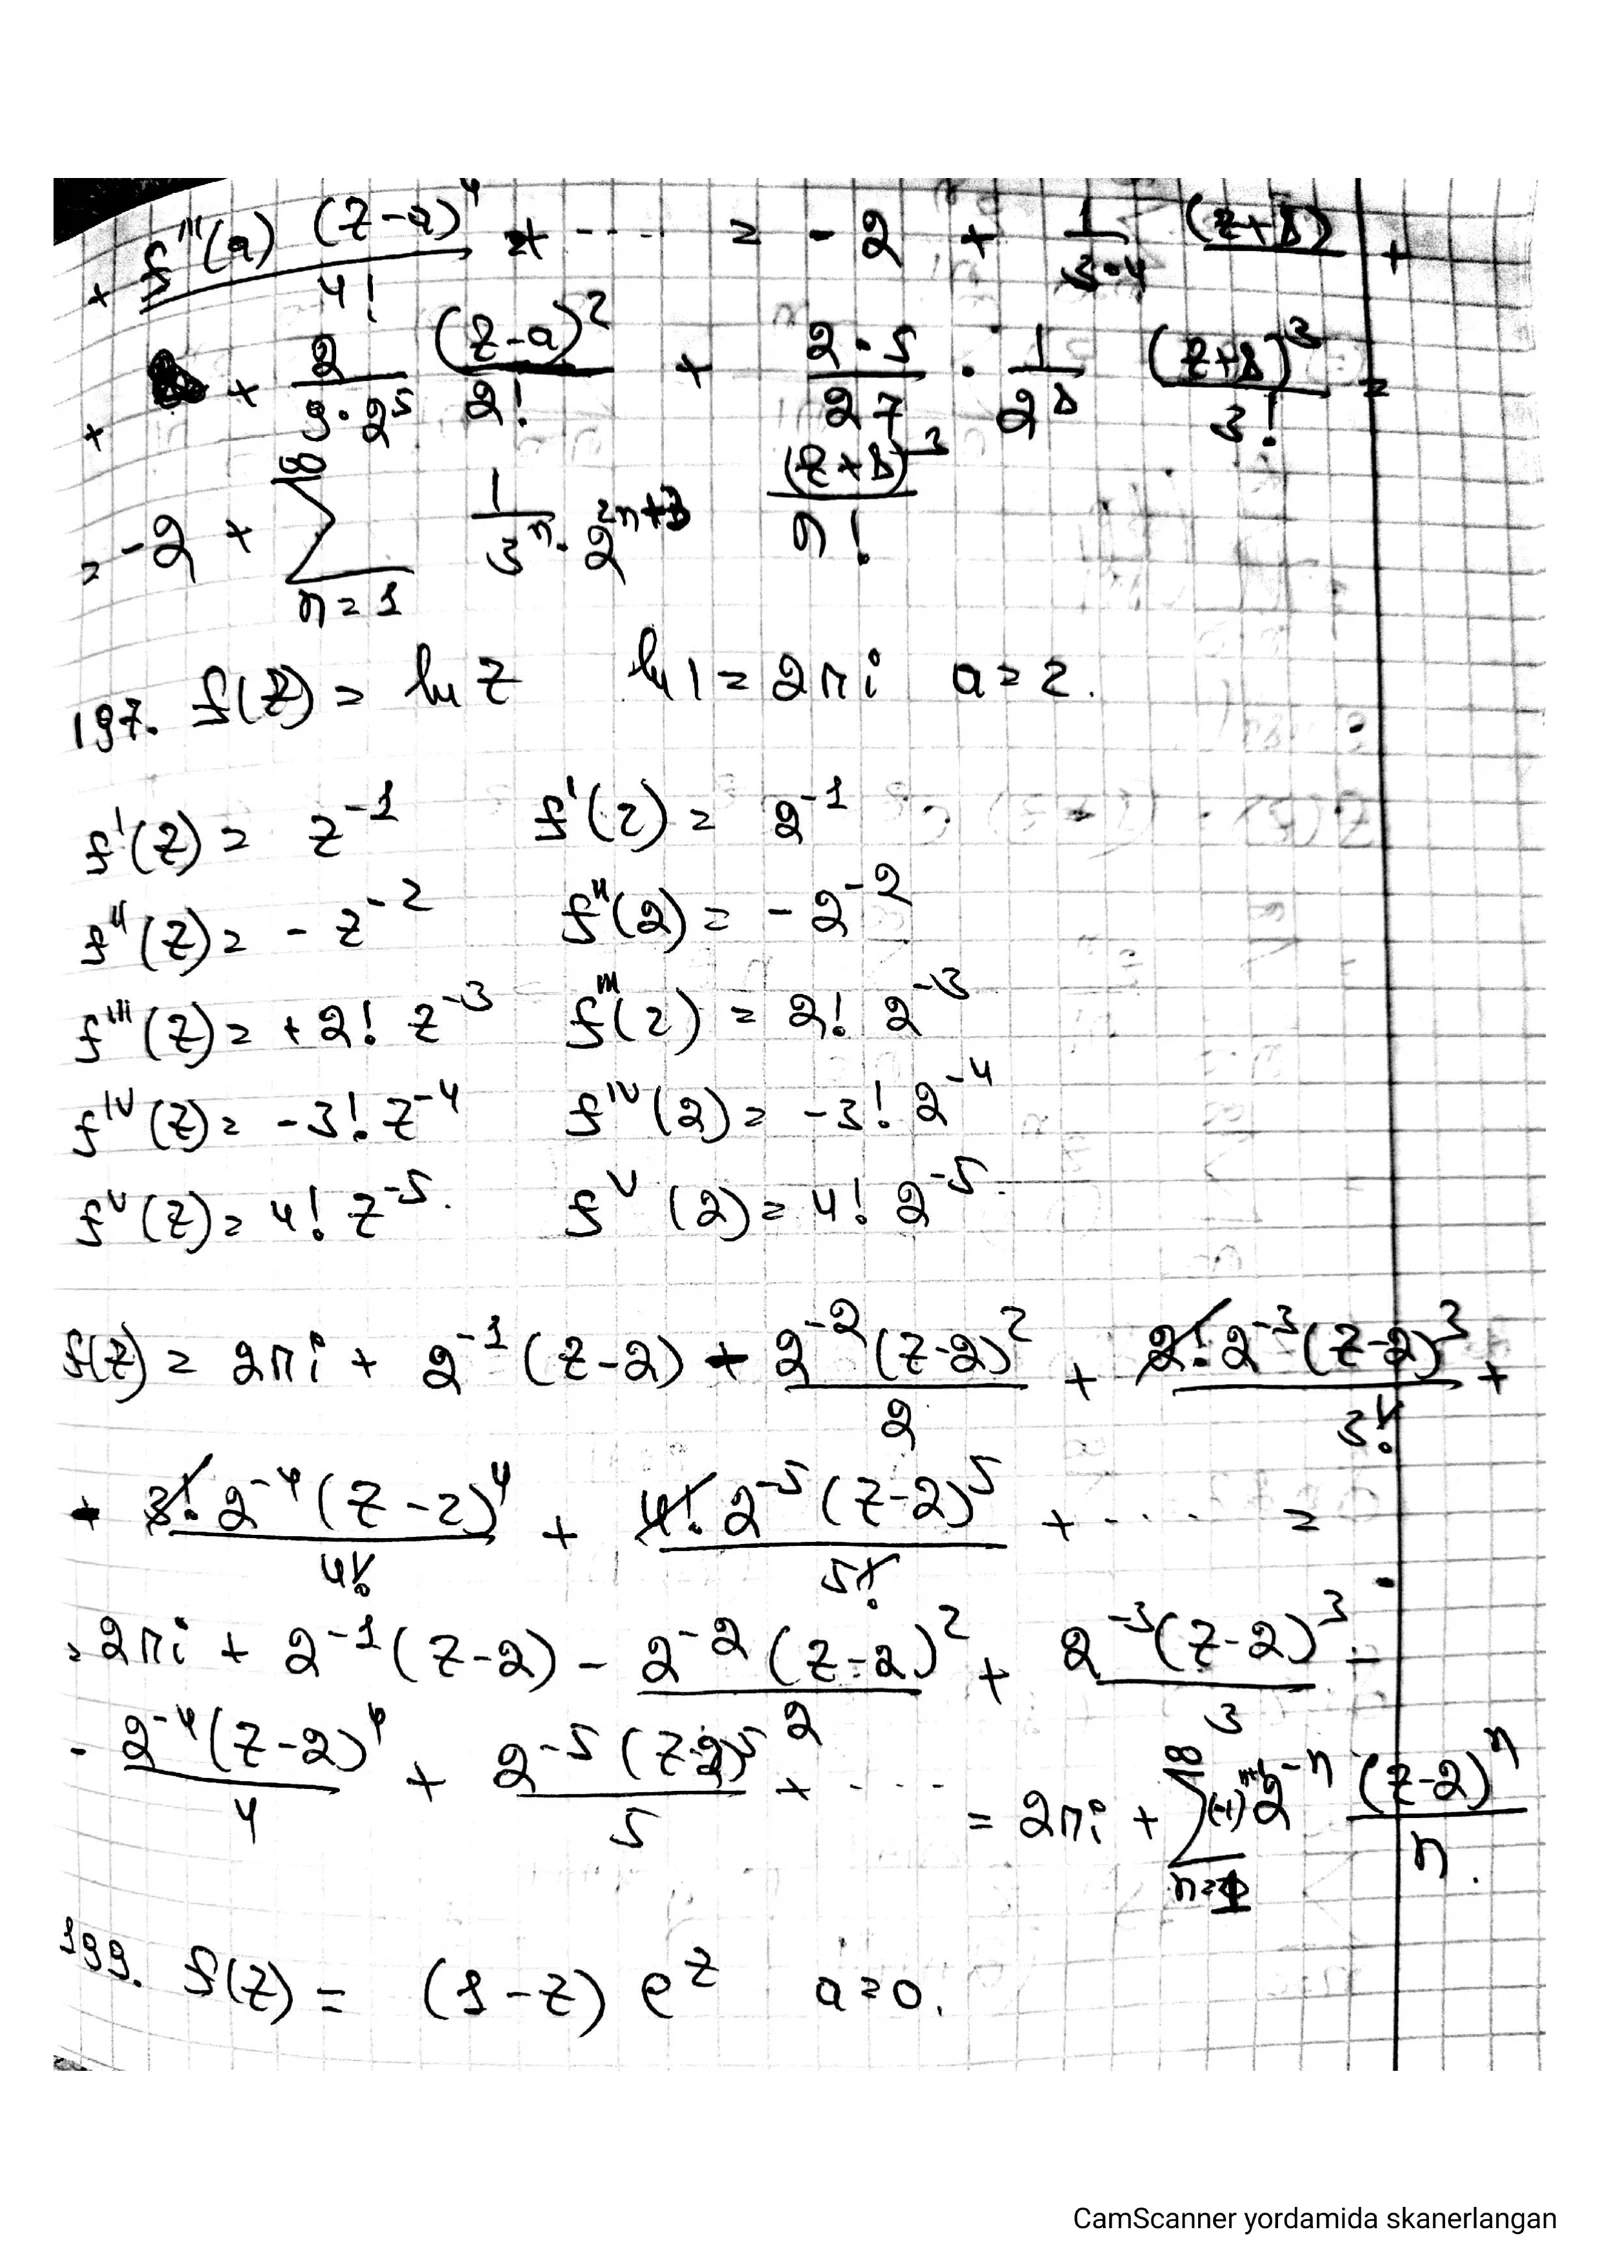 + f'''(a) (z-a)^4 / 4! + ···· = -2 + 1/(3·4) (z+8) +
+ + 2/(9·2^5) (z-a)^2/2! + (2·5)/27 · 1/2^8 (z+8)^3/3! =
= -2 + ∑_{n=1}^{∞} 1/(3^n · 2^{2n+3}) (z+8)^3/n!
197. f(z) = ln z ln 1 = 2πi a = 2.
f'(z) = z^{-1} f'(2) = 2^{-1}
f''(z) = - z^{-2} f''(2) = - 2^{-2}
f'''(z) = + 2! z^{-3} f'''(2) = 2! 2^{-3}
f^{IV}(z) = -3! z^{-4} f^{IV}(2) = -3! 2^{-4}
f^{V}(z) = 4! z^{-5}. f^{V}(2) = 4! 2^{-5}.
f(z) = 2πi + 2^{-1}(z-2) - 2^{-2}(z-2)^2/2 + 2! 2^{-3}(z-2)^3/3! +
- 3! 2^{-4}(z-2)^4/4! + 4! 2^{-5}(z-2)^5/5! + ···· =
= 2πi + 2^{-1}(z-2) - 2^{-2}(z-2)^2/2 + 2^{-3}(z-2)^3/3 -
- 2^{-4}(z-2)^4/4 + 2^{-5}(z-2)^5/5 + ···· = 2πi + ∑_{n=1}^{∞} (-1)^{n+1} 2^{-n} (z-2)^n/n.
199. f(z) = (1-z) e^z a = 0.
CamScanner yordamida skanerlangan